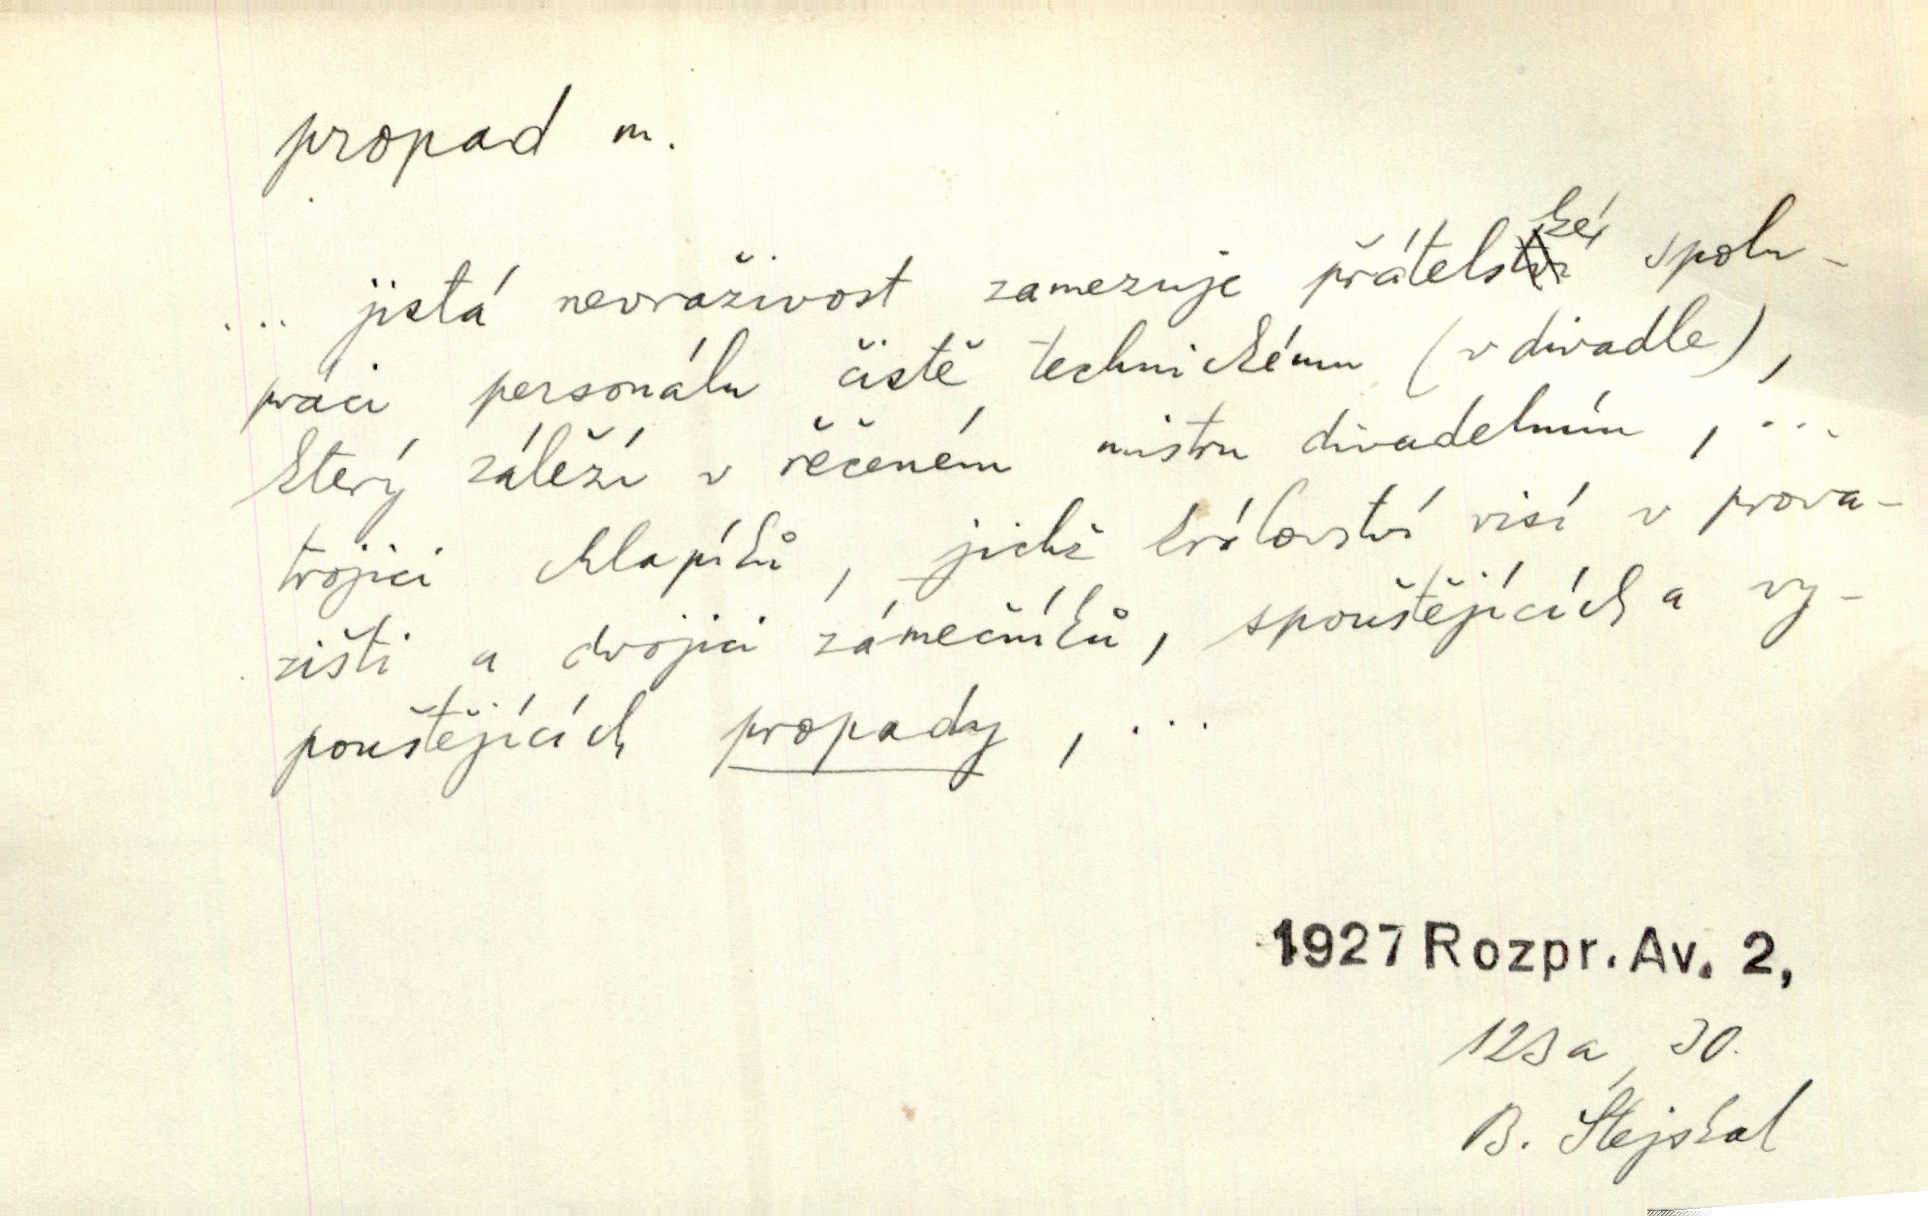 propad m.
... jistá nevraživost zamezuje přátelské spolu-
práci personálu čistě technickému (v divadle),
který záleží v řečeném mistru divadelním, ...
trojici chlapíků, jichž království visí v prova-
zišti a dvojici zámečníků, spouštějících a vy-
pouštějících propady, ...
1927 Rozpr. Av. 2,
123a, 30.
B. Štejskal